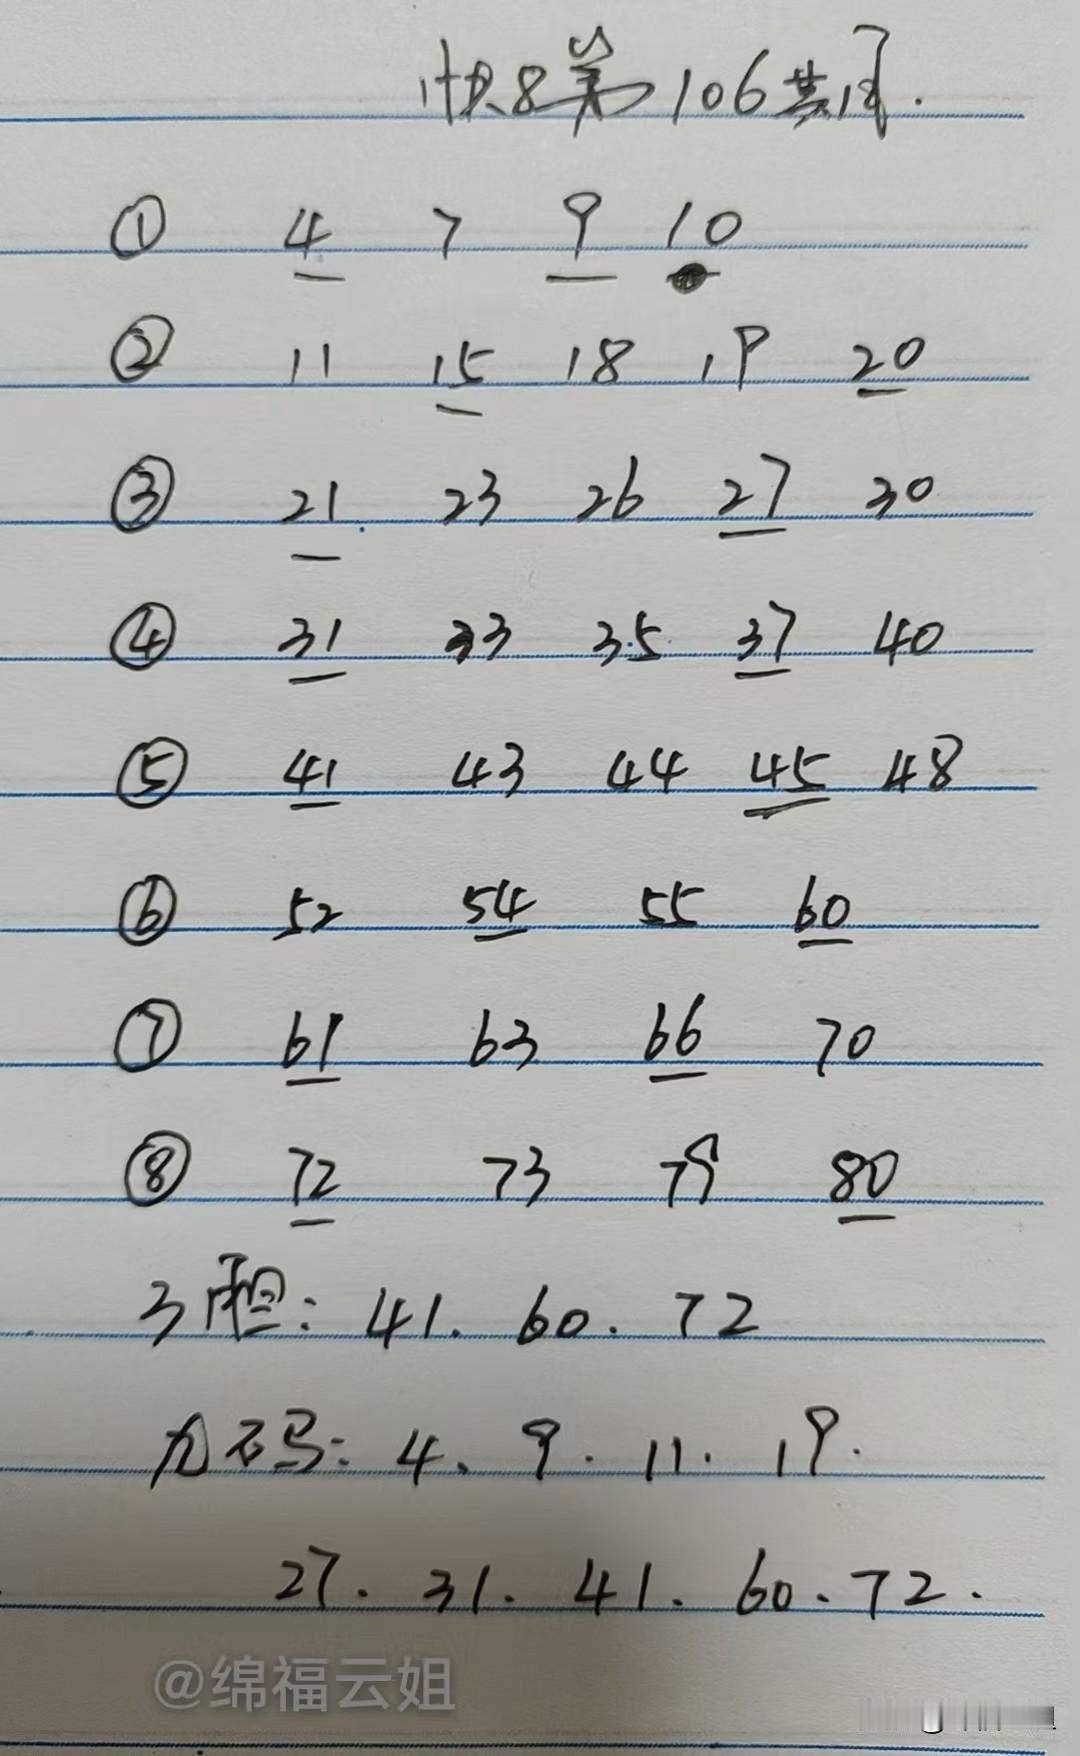 快8第106期
① 4 7 9 10
② 11 15 18 19 20
③ 21 23 26 27 30
④ 31 33 35 37 40
⑤ 41 43 44 45 48
⑥ 52 54 55 60
⑦ 61 63 66 70
⑧ 72 73 79 80
3胆: 41. 60. 72
九码: 4、9. 11. 19.
27. 31. 41. 60. 72.
@绵福云姐